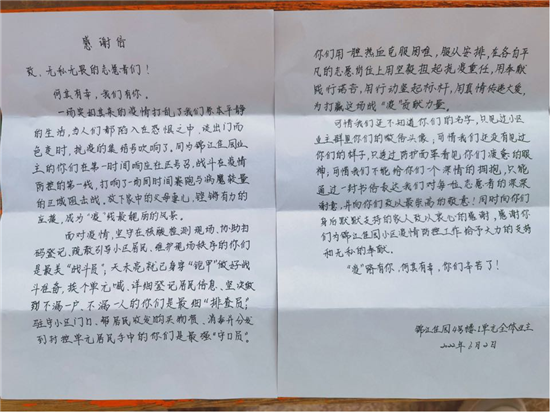 感谢信
致：无私无畏的志愿者们！
何其有幸，我们有你。
一场突如其来的疫情打乱了我们原本平静
的生活，当人们都陷入在恐慌之中，谈出门而
色变时，抗疫的集结号吹响了，同为锦江佳园业
主的你们在第一时间响应社区号召，战斗在疫情
防控的第一线，打响了一场同时间赛跑与病魔较量
的三城阻击战，放下家中的父母妻儿，铿锵有力的
在岗，成为"疫"线最靓丽的风景。
面对疫情，坚守在核酸检测现场，协助扫
码登记，疏散引导小区居民，维护现场秩序的你们
是最美"战斗员"；天未亮就已身穿"铠甲"做好战
斗准备，挨个单元喊，详细登记居民信息，坚决做
到不漏一户、不漏一人的你们是最细"排查员"；
驻守小区门口，帮居民收发购买物资、消毒并分发
到对应单元居民手中的你们是最强"守门员"。
你们用一腔热血克服困难，服从安排，在各自平
凡的志愿岗位上用坚毅担起抗疫重任，用奉献
践行诺言，用行动竖起标杆，用真情传递大爱，
为打赢这场战"疫"贡献力量。
可惜我们是不知道你们的名字，只见过小区
业主群里你们的微信头像，可惜我们还没有见过
你们的样子，只透过防护面罩看见你们疲惫的眼
神；可惜我们不能给你们一个深情的拥抱，只能
通过一封书信表达我们对每位志愿者的深深
谢意，并向你们致以最崇高的敬意！同时向你们
身后默默支持的家人致以衷心的感谢，感谢你
们为锦江佳园小区疫情防控工作给予大力的支持
和无私的奉献。
"疫"路有你，何其有幸，你们辛苦了！
锦江佳园4号幢2单元全体业主
2022年5月2日